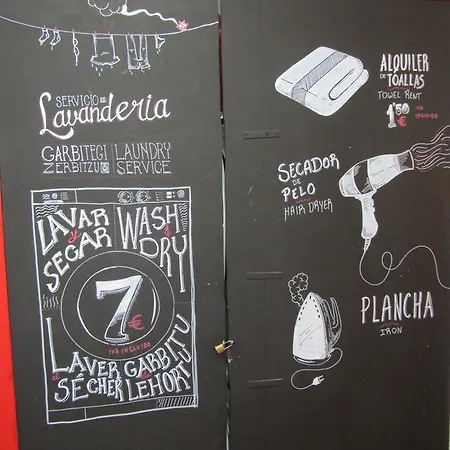 SERVICIO DE
Lavanderia
GARBITEGI
ZERBITZUA
LAUNDRY
SERVICE
LAVAR
y
SEGAR
WASH
&
DRY
7€
IVA INCLUIDO
LAVER
et
SÉCHER
GARBITU
eta
LEHORTU
ALQUILER
DE TOALLAS
TOWEL RENT
1'50 €
IVA
INCLUIDO
SECADOR
DE
PELO
HAIR DRYER
PLANCHA
IRON